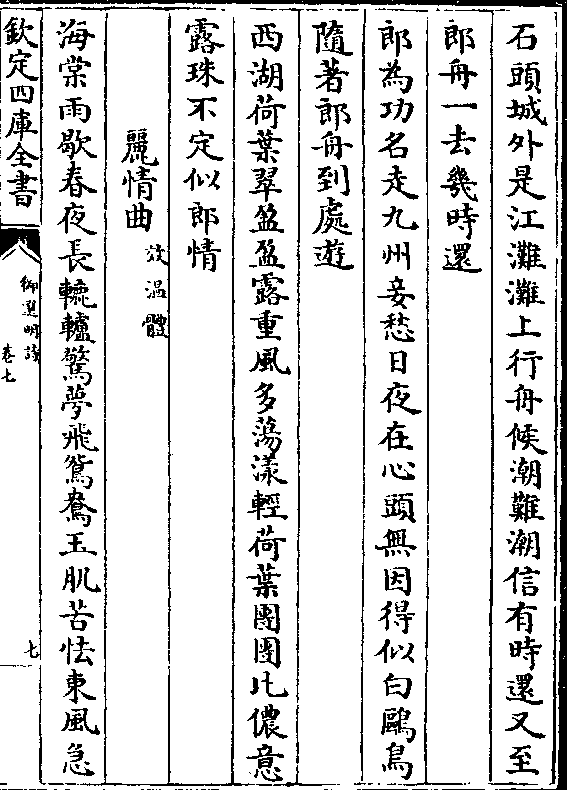 石頭城外是江灘灘上行舟候潮難潮信有時還又至
郎舟一去幾時還
郎為功名走九州妾愁日夜在心頭無因得似白鷗鳥
隨著郎舟到處遊
西湖荷葉翠盈盈露重風多蕩漾輕荷葉團團比儂意
露珠不定似郎情
麗情曲效溫體
海棠雨歇春夜長轆轤驚夢飛鴛鴦玉肌苦怯東風急
欽定四庫全書
御選明詩
卷七
七